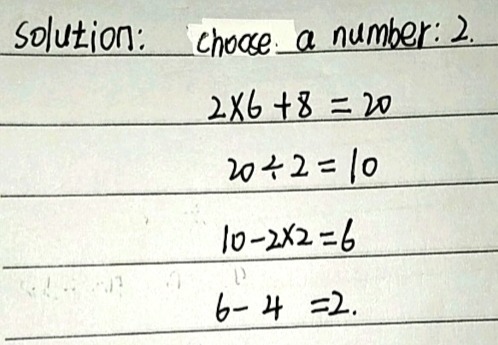 solution: choose a number: 2.
2×6+8=20
20÷2=10
10-2×2=6
6-4=2.